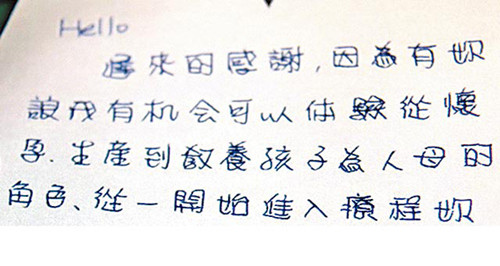 Hello
遲來的感謝,因為有妳
讓我有机会可以体驗從懷
孕.生產到教養孩子為人母的
角色、從一開始進入療程妳